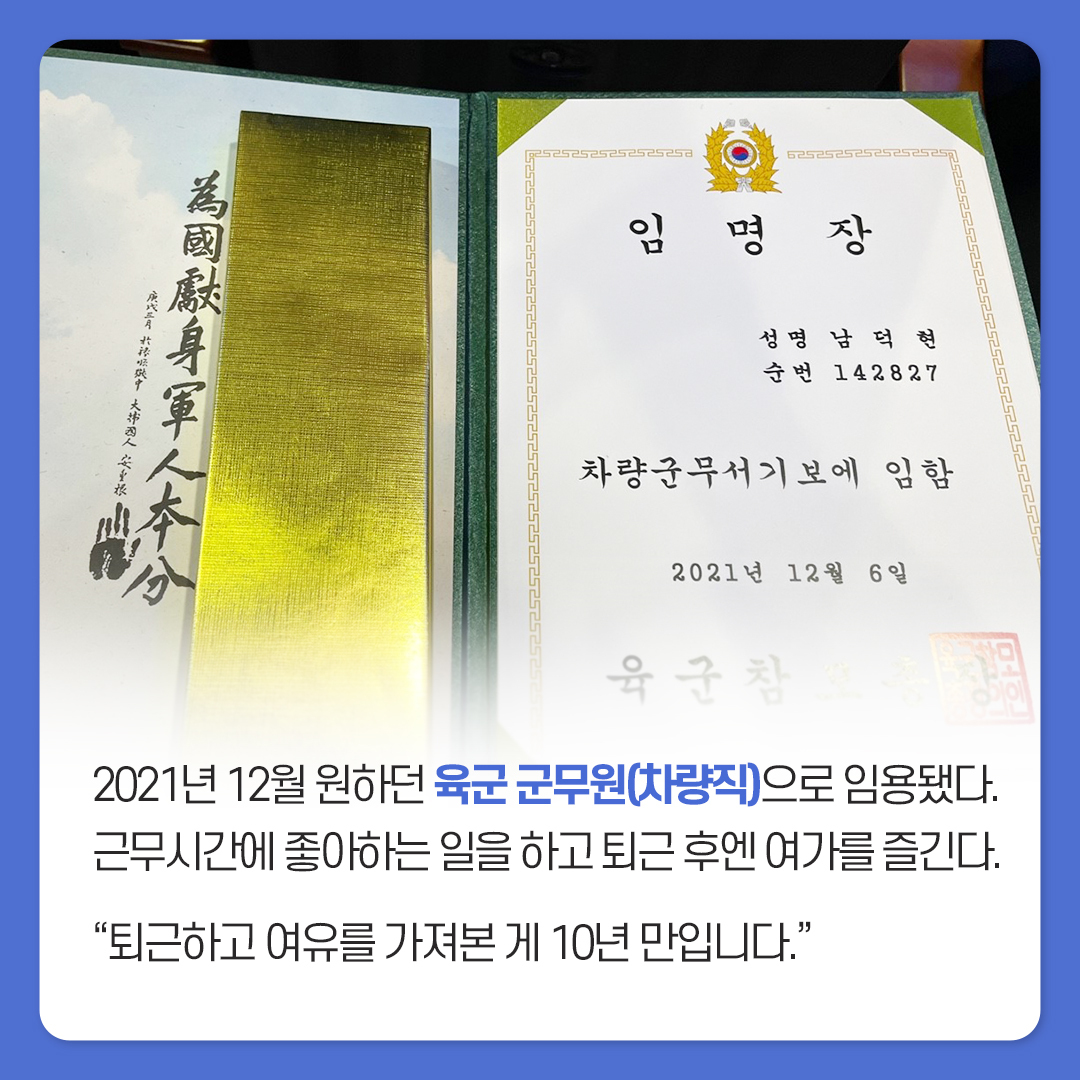 為國獻身軍人本分
庚戌三月 於旅順獄中 大韓國人 安重根
임 명 장
성명 남 덕 현
순번 142827
차량군무서기보에 임함
2021년 12월 6일
육 군 참 모 총 장
2021년 12월 원하던 육군 군무원(차량직)으로 임용됐다.
근무시간에 좋아하는 일을 하고 퇴근 후엔 여가를 즐긴다.
“퇴근하고 여유를 가져본 게 10년 만입니다.”